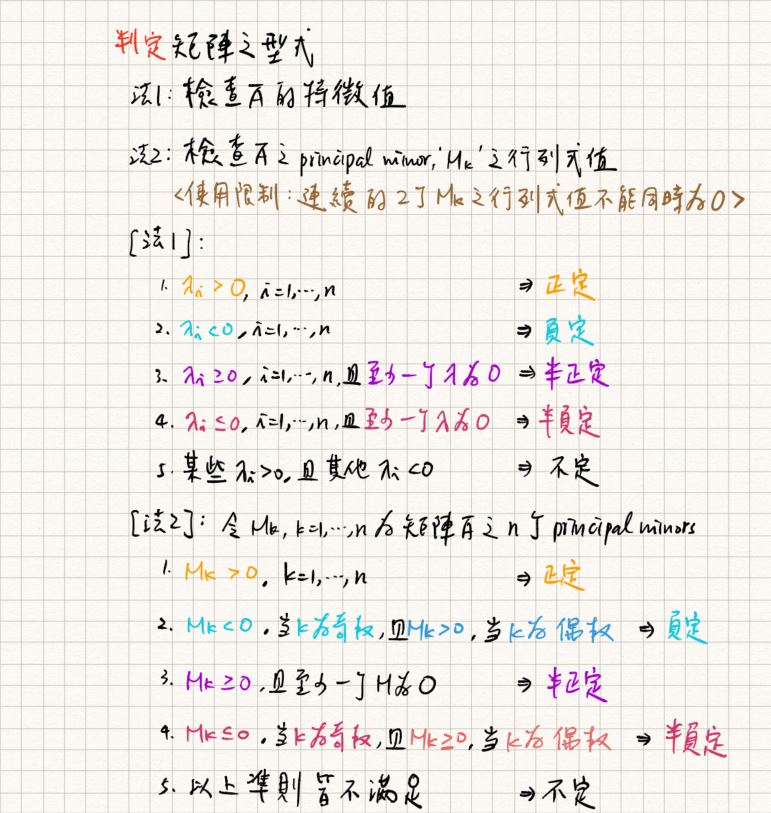 判定矩陣之型式
法1: 檢查A的特徵值
法2: 檢查A之principal minor, 'Mk' 之行列式值
<使用限制: 連續的2个Mk之行列式值不能同時為0>
[法1]:
1. λi > 0, i=1,…,n ⇒ 正定
2. λi < 0, i=1,…,n ⇒ 負定
3. λi ≥ 0, i=1,…,n, 且至少一个λ為0 ⇒ 半正定
4. λi ≤ 0, i=1,…,n, 且至少一个λ為0 ⇒ 半負定
5. 某些λi>0, 且其他λi<0 ⇒ 不定
[法2]: 令Mk, k=1,…,n 為矩陣A之n个principal minors
1. Mk > 0, k=1,…,n ⇒ 正定
2. Mk < 0, 當k為奇數, 且Mk>0, 當k為偶數 ⇒ 負定
3. Mk ≥ 0, 且至少一个M為0 ⇒ 半正定
4. Mk ≤ 0, 當k為奇數, 且Mk≥0, 當k為偶數 ⇒ 半負定
5. 以上準則皆不滿足 ⇒ 不定